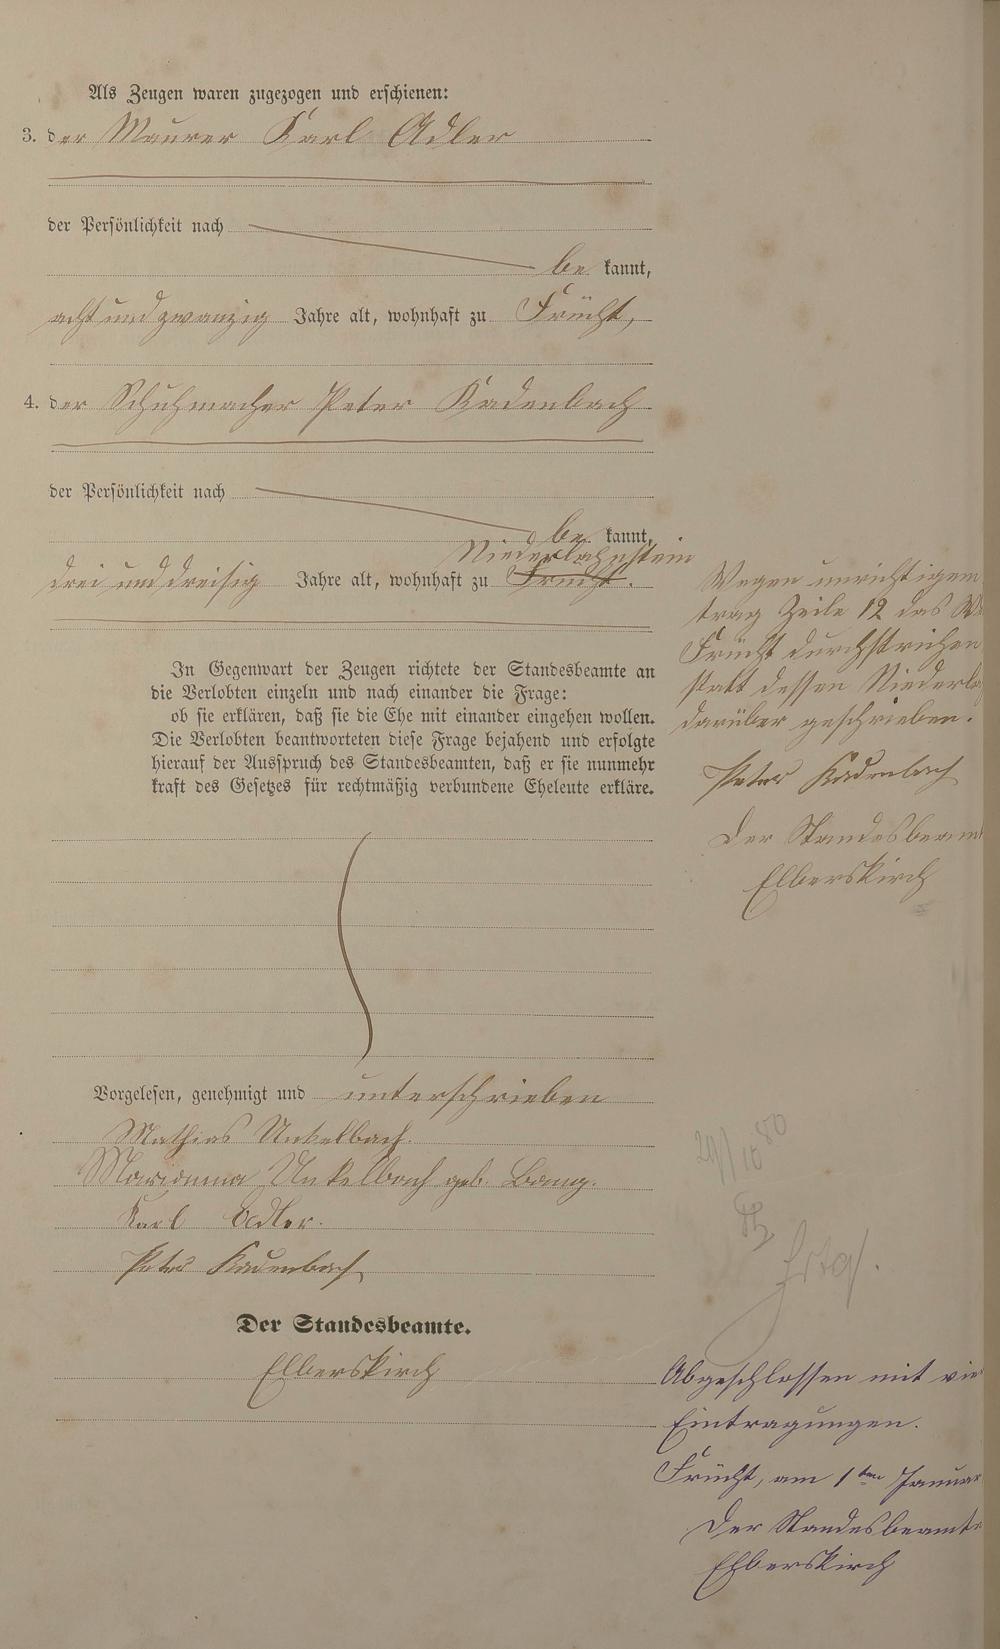 Als Zeugen waren zugezogen und erschienen:
3. der Maurer Karl Adler
der Persönlichkeit nach
be kannt,
acht und zwanzig Jahre alt, wohnhaft zu Frücht,
4. der Schuhmacher Peter Kadenbach
der Persönlichkeit nach
be kannt,
Niederlahnstein
drei und dreisig Jahre alt, wohnhaft zu Frücht.
In Gegenwart der Zeugen richtete der Standesbeamte an
die Verlobten einzeln und nach einander die Frage:
ob sie erklären, daß sie die Ehe mit einander eingehen wollen.
Die Verlobten beantworteten diese Frage bejahend und erfolgte
hierauf der Ausspruch des Standesbeamten, daß er sie nunmehr
kraft des Gesetzes für rechtmäßig verbundene Eheleute erkläre.
Vorgelesen, genehmigt und unterschrieben
Mathias Unkelbach.
Marianna Unkelbach geb.
Karl Adler.
Peter Kadenbach
Der Standesbeamte.
Elberskirch
Wegen unrichtigem
trag Zeile 12 das W
Frücht durchstrichen
statt dessen Niederla
darüber geschrieben.
Peter Kadenbach
Der Standesbeamt
Elberskirch
Abgeschlossen mit vie
Eintragungen.
Frücht, am 1ten Januar
Der Standesbeamte
Elberskirch